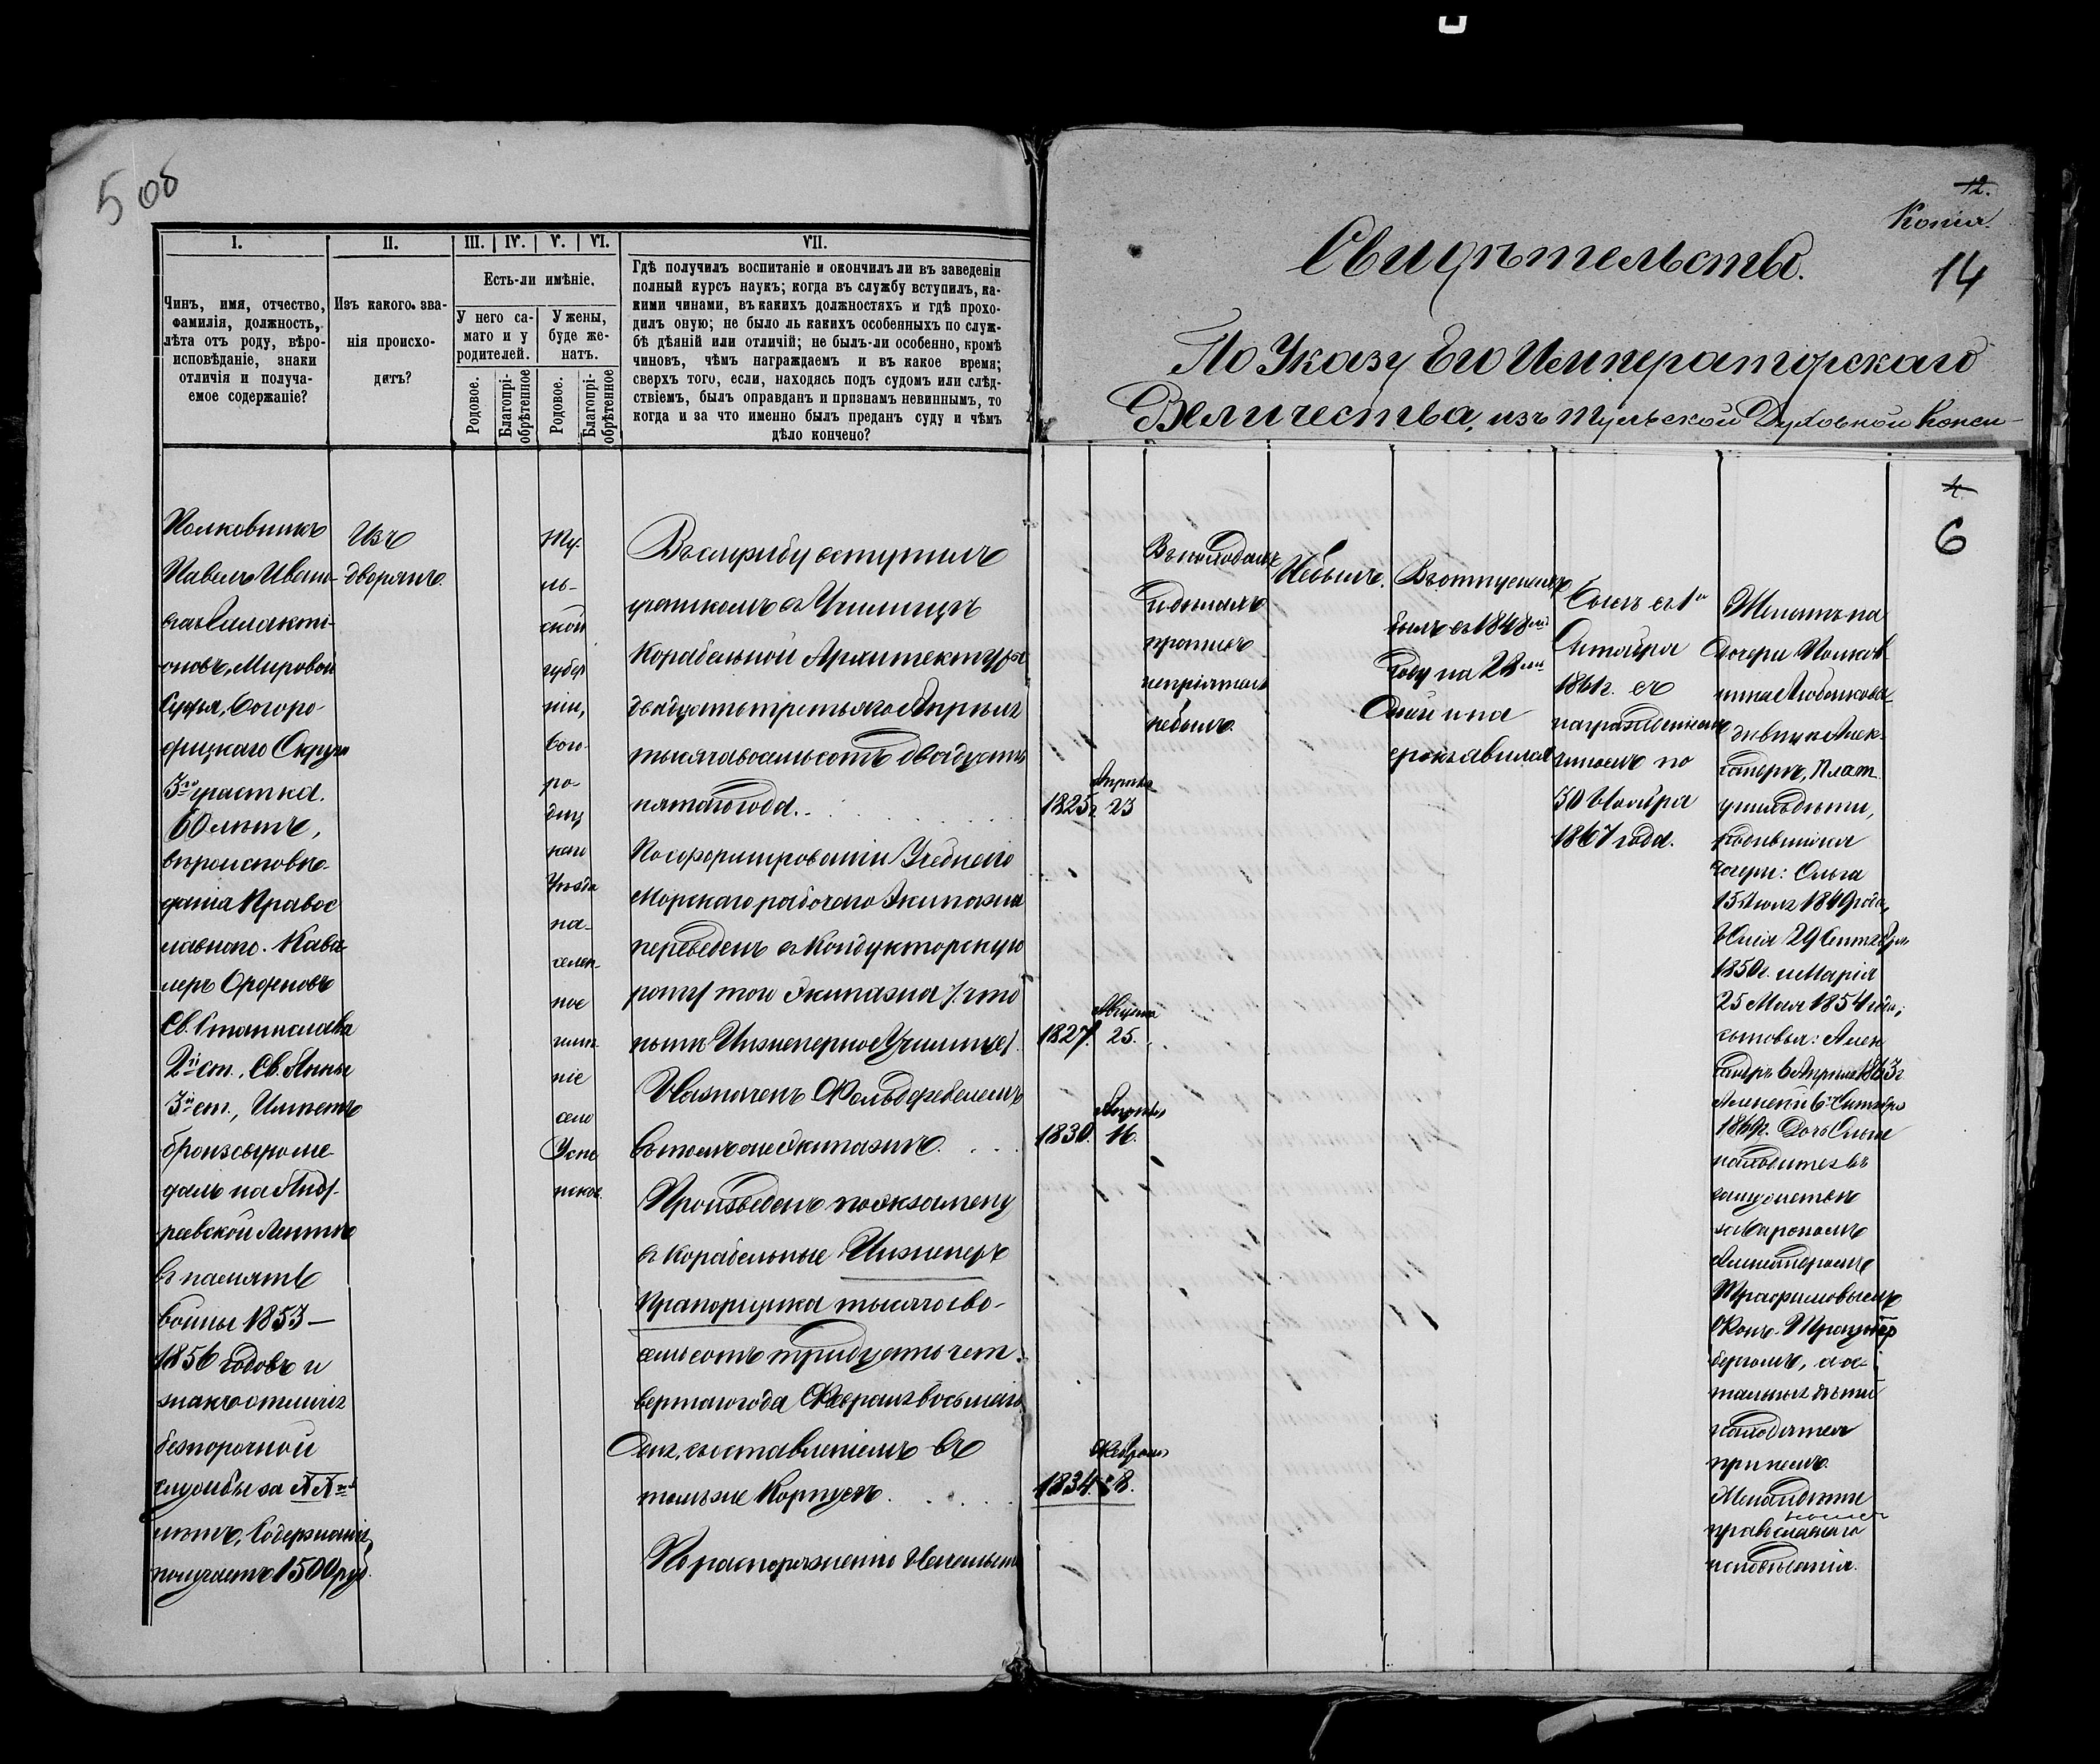 5 об
I.
II.
III.
IV.
V.
VI.
VII.
Чинъ, имя, отчество,
фамилія, должность,
лѣта отъ роду, вѣро-
исповѣданіе, знаки
отличія и получа-
емое содержаніе?
Изъ какого зва-
нія происхо-
дитъ?
Есть-ли имѣніе.
У него са-
маго и у
родителей.
У жены,
буде же-
натъ.
Родовое.
Благопрі-
обрѣтенное
Родовое.
Благопрі-
обрѣтенное
Гдѣ получилъ воспитаніе и окончилъ ли въ заведеніи
полный курсъ наукъ; когда въ службу вступилъ, ка-
кими чинами, въ какихъ должностяхъ и гдѣ прохо-
дилъ оную; не было ль какихъ особенныхъ по служ-
бѣ дѣяній или отличій; не былъ-ли особенно, кромѣ
чиновъ, чѣмъ награждаемъ и въ какое время;
сверхъ того, если, находясь подъ судомъ или слѣд-
ствіемъ, былъ оправданъ и признамъ невиннымъ, то
когда и за что именно былъ преданъ суду и чѣмъ
дѣло кончено?
Полковникъ
Павелъ Ивано-
оновъ, Мировой
Судья, Богоро-
дицкаго Округа
3го участка.
60 лѣтъ,
вѣроисповѣ-
данія Правос
лавнаго. Кава
леръ Орденовъ
Св. Станислава
2й ст., Св. Анны
3й ст., Имѣетъ
бронзовую ме-
даль на Анд-
реевской Лентѣ
въ память
войны 1853 —
1856 годовъ и
знакъ отличія
безпорочной
службы за XX
лѣтъ, Содержанія
получаетъ 1500 руб.
Изъ
дворянъ.
Ту-
ль-
ской
губер
ніи,
Бого-
ро-
диц
каго
Уѣзда
на-
селен-
ное
имѣ
ніе
село
Успе
нское.
Въ службу вступилъ
ученикомъ въ Училище
Корабельной Архитектуры
двадцать третьяго Апрѣля
тысяча восемьсотъ двадцать
пятаго года. .
По сформированіи Учебнаго
Морскаго рабочаго Экипажа
переведенъ въ Кондукторскую
роту того Экипажа /: что
нынѣ Инженерное Училище/.
Назначенъ Фельдфебелемъ
въ томъ же Экипажѣ.
Произведенъ по экзамену
въ Корабельные Инженеръ
Прапорщика тысяча во-
семьсотъ тридцать чет-
вертаго года Февраля восьмаго
Дня, съ оставленіемъ въ
томъ же Корпусѣ.
По распоряженію Начальст
12.
Копія.
14
Свидѣтельство.
По Указу Его Императорскаго
Величества, изъ Тульской Духовной Конси-
4
6
1825г.
Апрѣля
23
1827.
Августа
25.
1830.
Апрѣля
16.
1834.
Февраля
8.
Въ походахъ
и дѣлахъ
противъ
непріятеля
небылъ.
Небылъ.
Въ отпускахъ
былъ въ 1848мъ
Году на 28мь
Дней и на
срокъ явился
1861г. съ
награжденіемъ
чиномъ по
30 Ноября
1867 года.
Женатъ на
дочери Полков
дѣвицѣ Алек-
дочери: Ольга
15 Іюля 1849 года,
Юлія 29 Сентября
1850г. и Марія
25 Мая 1854 года,
сыновья: Алек
сандръ 6 Апрѣля 1863г.
Алексѣй 6го Октября
находится въ
замужествѣ
за Барономъ
Фонъ-Трауцен
бергомъ, а ос-
тальныя дѣти
находятся
при немъ.
православнаго
исповѣданія.